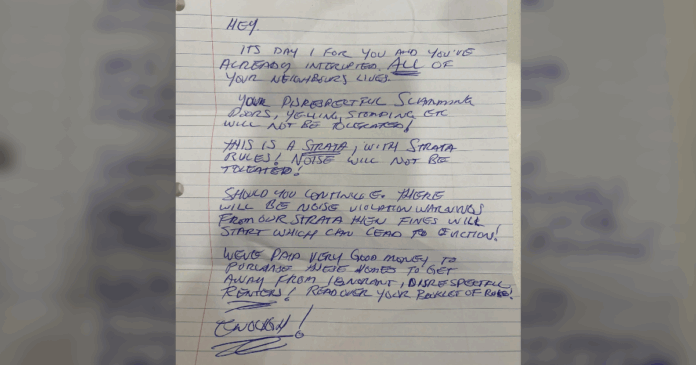 HEY.
ITS DAY 1 FOR YOU AND YOU'VE
ALREADY INTERUPTED ALL OF
YOUR NEIGHBOURS LIVES.
YOUR DISRESPECTFUL SLAMMING
DOORS, YELLING, STOMPING ETC
WILL NOT BE TOLERATED!
THIS IS A STRATA, WITH STRATA
RULES! NOISE WILL NOT BE
TOLEATED!
SHOULD YOU CONTINUE. THERE
WILL BE NOISE VIOLATION WARNINGS
FROM OUR STRATA THEN FINES WILL
START WHICH CAN LEAD TO EVICTION!
WE'VE PAID VERY GOOD MONEY TO
PURCHASE THESE HOMES TO GET
AWAY FROM IGNORANT, DISRESPECTFUL
RENTERS! READ OVER YOUR BOOKLET OF RULES!
ENOUGH!